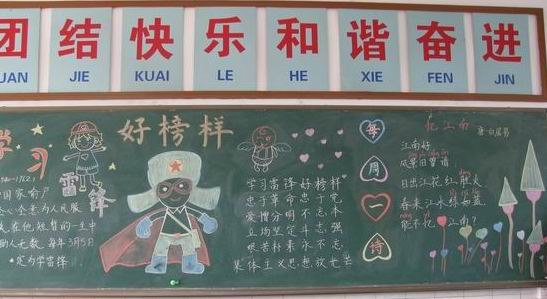 团 结 快 乐 和 谐 奋 进
UAN JIE KUAI LE HE XIE FEN JIN
学习
雷锋
好榜样
国家喻户
人民服
在他短暂的一生中
助人无数,每年3月5日
定为学雷锋
学习雷锋好榜样
忠于革命忠于党
爱憎分明不忘本
立场坚定斗志强
艰苦朴素永不忘
集体主义思想放光芒
每
周
一
诗
忆江南
唐 白居易
江南好
风景旧曾谙
日出江花红胜火
春来江水绿如蓝
能不忆江南?